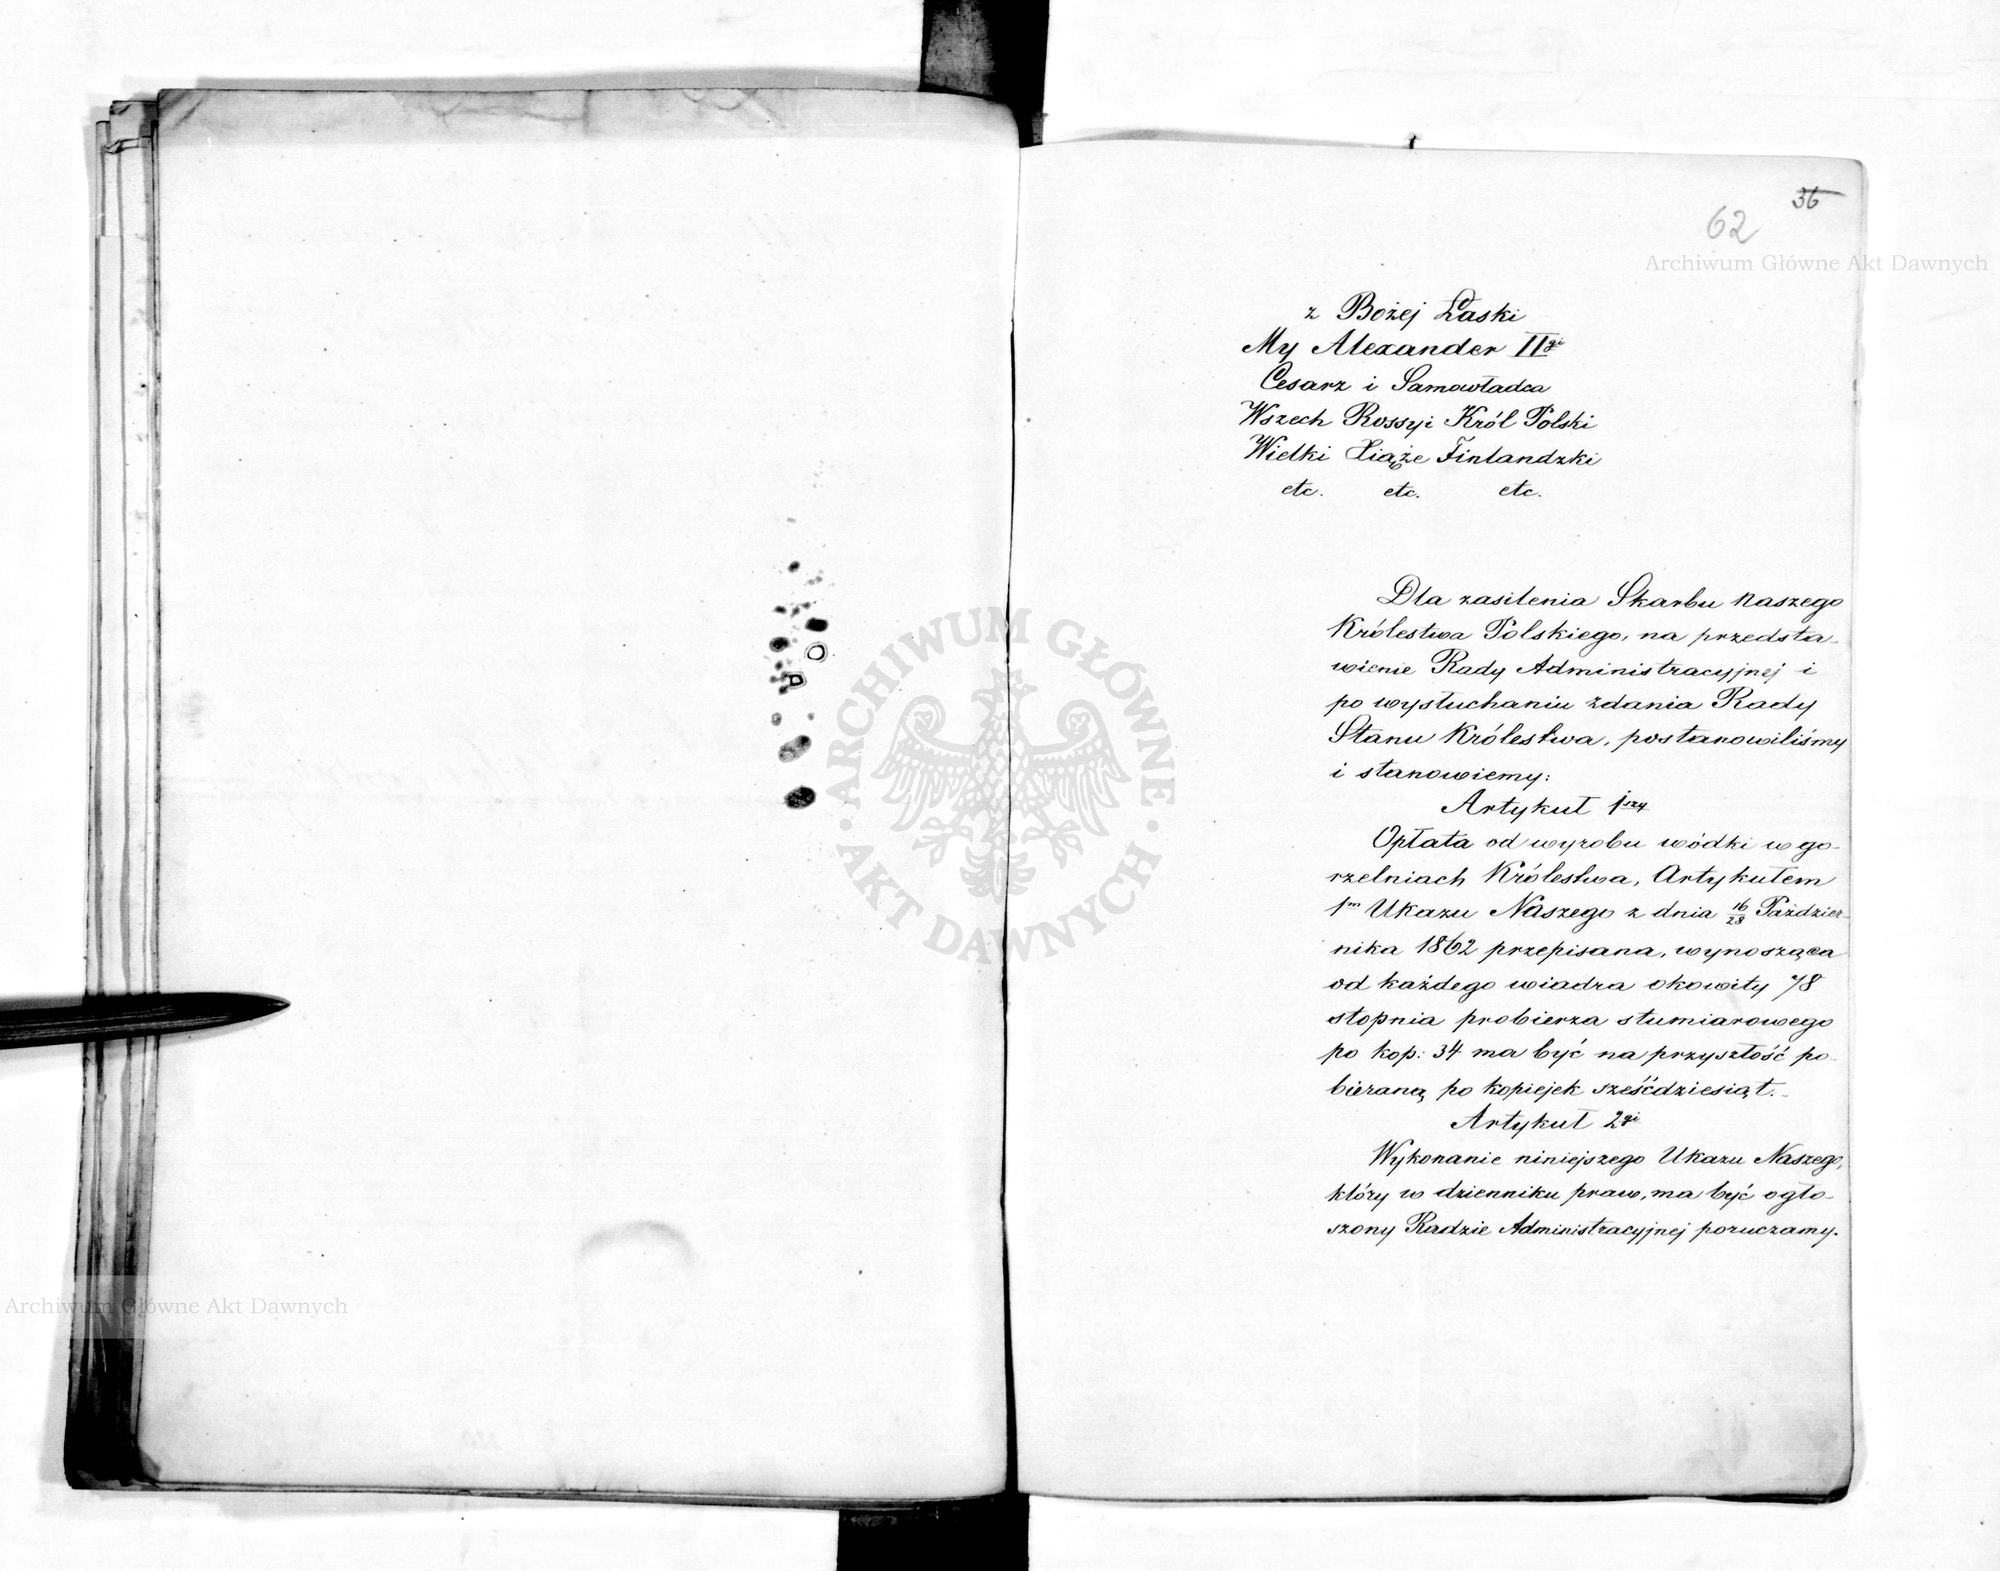 36
62
Archiwum Główne Akt Dawnych
z Bożej Łaski
My Alexander II gi
Cesarz i Samowładca
Wszech Rossyi Król Polski
Wielki Xiąże Finlandzki
etc. etc. etc.
Dla zasilenia Skarbu Naszego
Królestwa Polskiego, na przedsta-
wienie Rady Administracyjnej i
po wysłuchaniu zdania Rady
Stanu Królestwa, postanowiliśmy
i stanowiemy:
Artykuł 1szy
Opłata od wyrobu wódki w go-
rzelniach Królestwa, Artykułem
1m Ukazu Naszego z dnia 16/28 Paździer-
nika 1862 przepisana, wynosząca
od każdego wiadra okowity 78
stopnia probierza stumiarowego
po kop: 34 ma być na przyszłość po-
bieraną po kopiejek sześćdziesiąt.-
Artykuł 2gi
Wykonanie niniejszego Ukazu Naszego,
który w dzienniku praw, ma być ogło-
szony Radzie Administracyjnej poruczamy.
ARCHIWUM GŁÓWNE
AKT DAWNYCH
Archiwum Główne Akt Dawnych